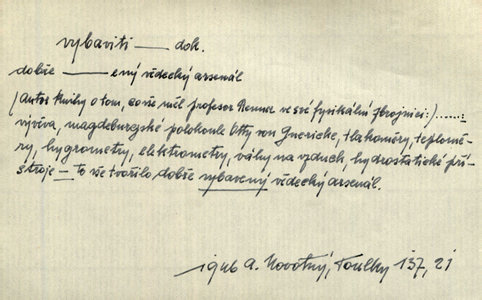 vybaviti — dok.
dobře — ený vědecký arsenál
(Autor knihy o tom, co vše měl profesor Renner ve své fysikální zbrojnici:) ......
vývěva, magdeburgské polokoule Otty von Guericke, tlakoměry, teplomě-
ry, hygrometry, elektrometry, váhy na vzduch, hydrostatické pří-
stroje — to vše tvořilo dobře vybavený vědecký arsenál.
A. Novotný, Toulky 137, 21